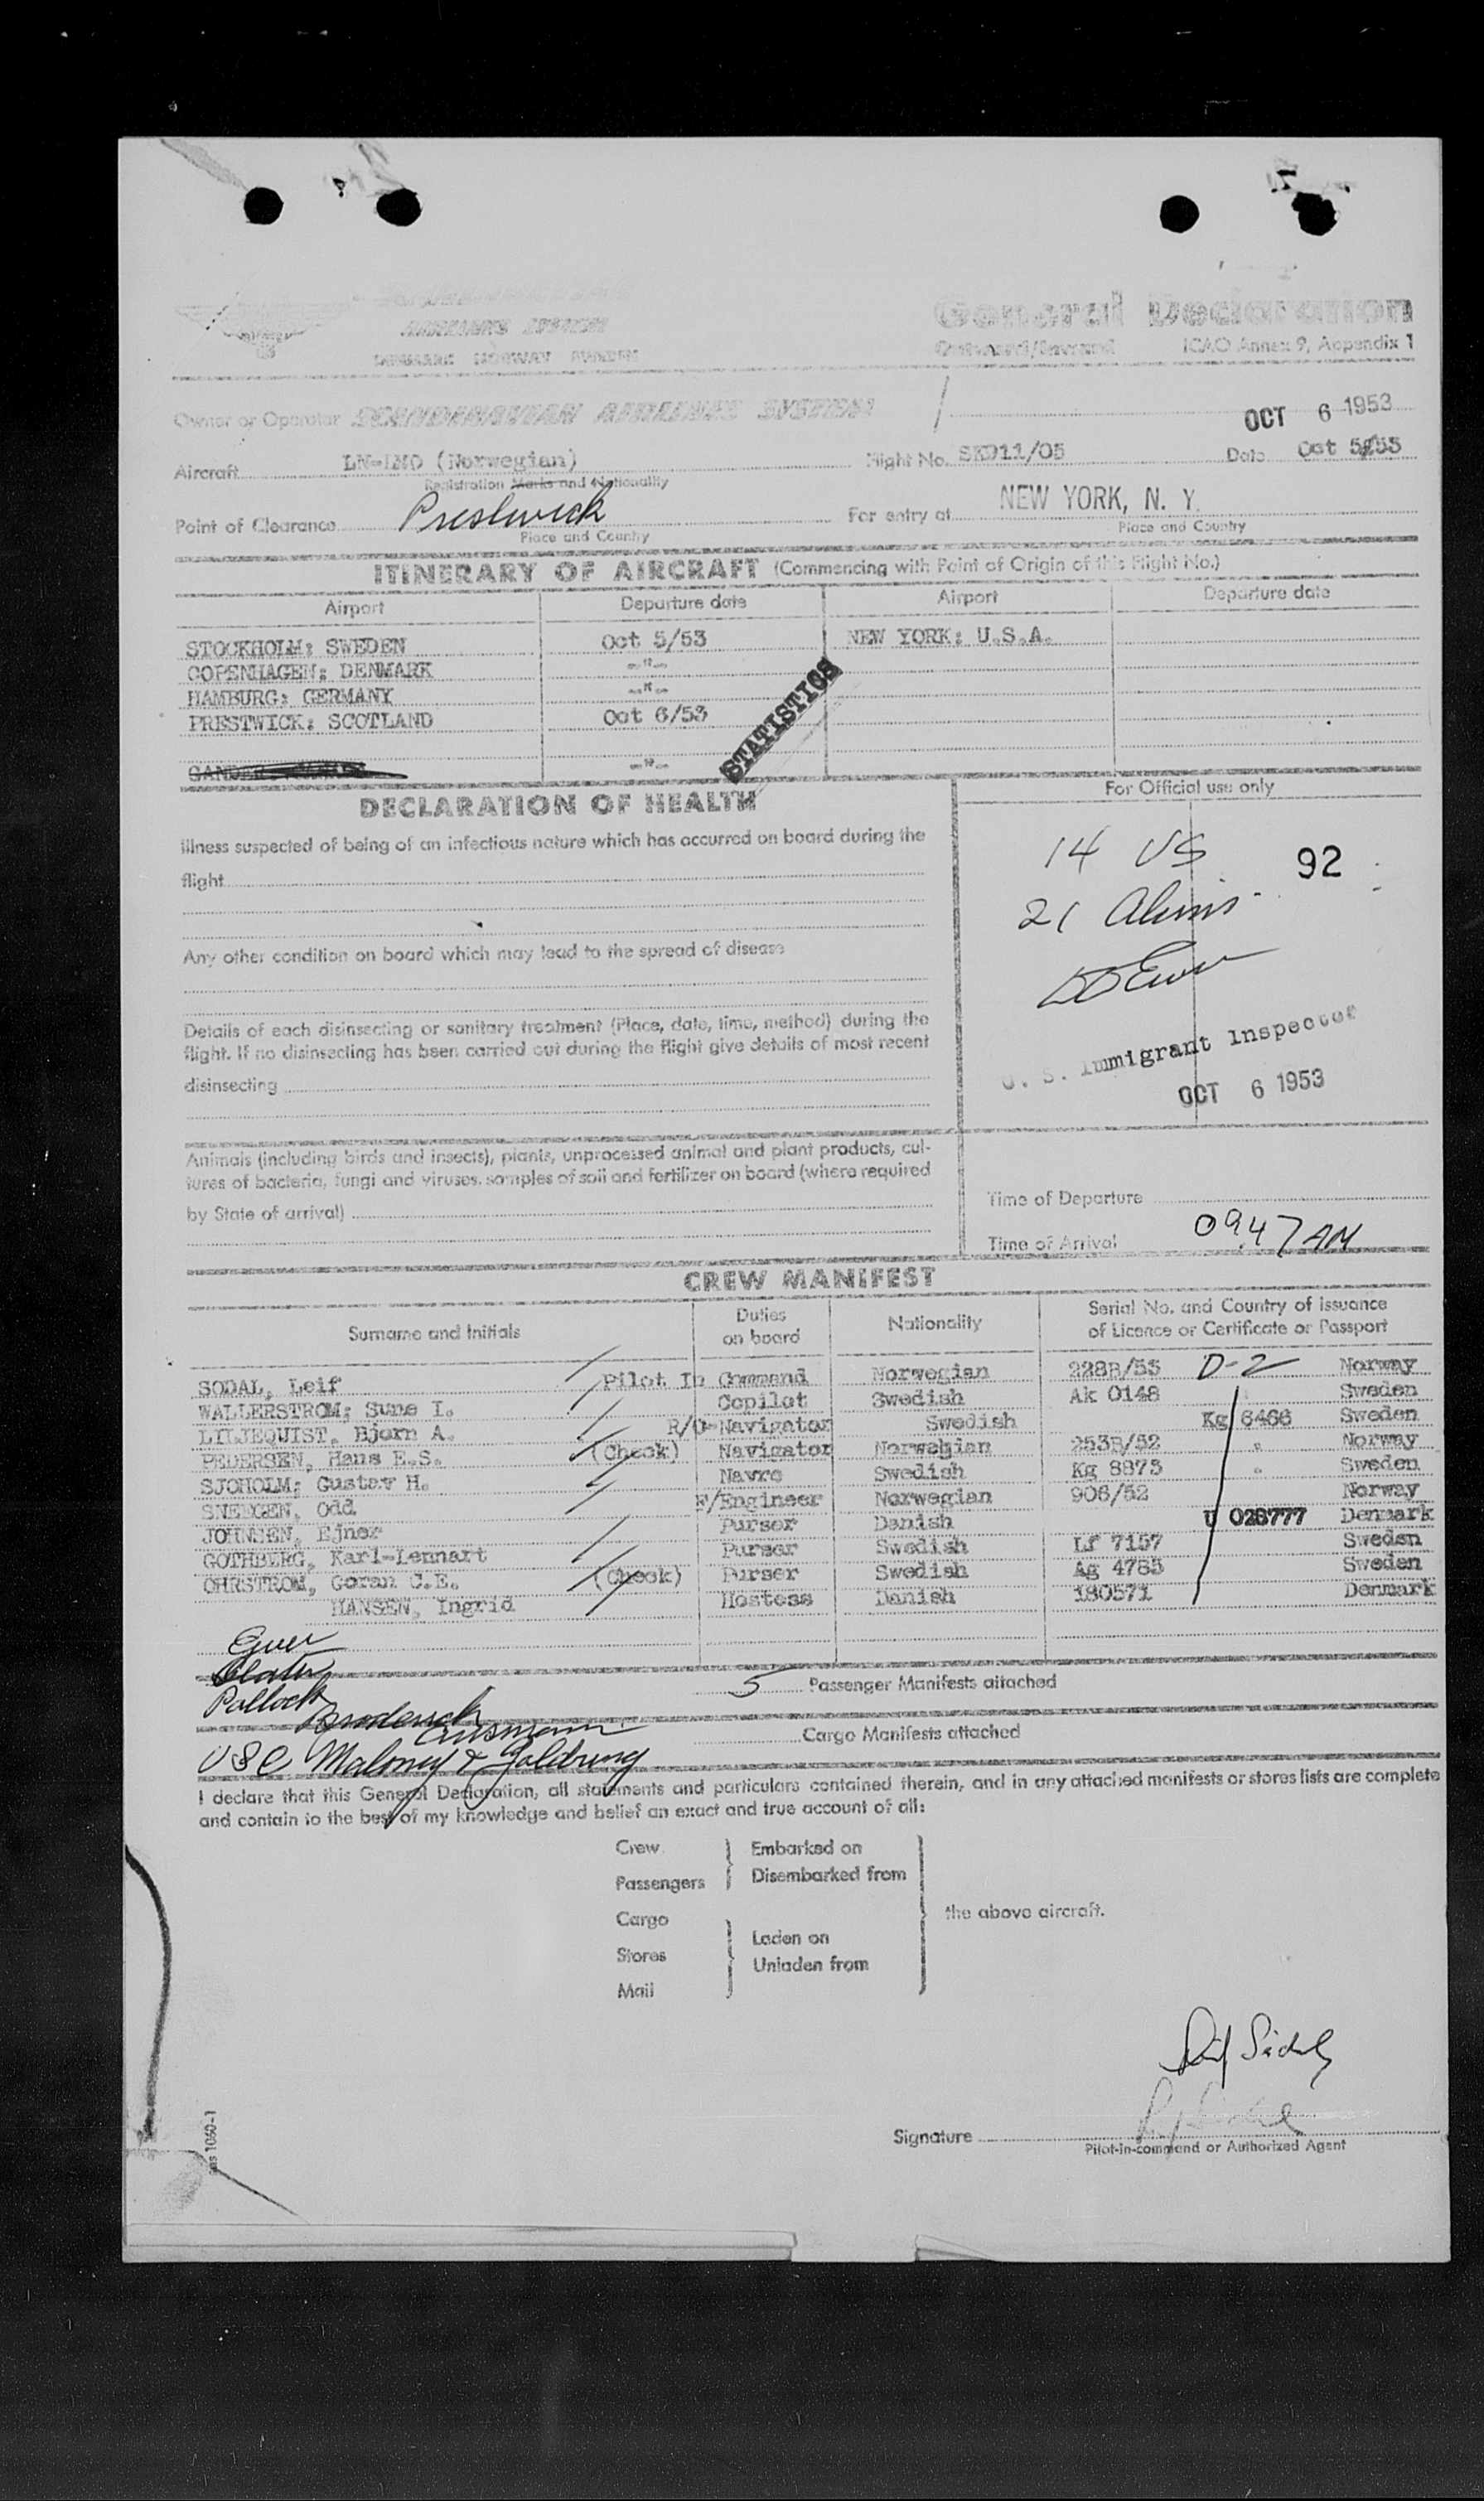 AIRLINES SYSTEM
DENMARK NORWAY SWEDEN
General Declaration
ICAO Annex 9, Appendix 1
Owner or Operator SCANDINAVIAN AIRLINES SYSTEM
OCT 6 1953
Aircraft (Norwegian) Flight No. SK911/05 Date Oct
Registration Marks and Nationality
Point of Clearance Prestwick For entry at NEW YORK, N. Y.
Place and County Place and Country
ITINERARY OF AIRCRAFT (Commencing with Point of Origin of this Flight No.)
Airport Departure date Airport Departure date
STOCKHOLM: SWEDEN Oct 5/53 NEW YORK: U.S.A.
COPENHAGEN: DENMARK -"-
HAMBURG: GERMANY -"-
PRESTWICK: SCOTLAND Oct 6/53
-"-
STATISTICS
DECLARATION OF HEALTH
For Official use only
Illness suspected of being of an infectious nature which has occurred on board during the
flight
14 US
92
21 Aliens
Any other condition on board which may lead to the spread of disease
Details of each disinsecting or sanitary treatment (Place, date, time, method) during the
flight. If no disinsecting has been carried out during the flight give details of most recent
disinsecting
U. S. Immigrant Inspector
OCT 6 1953
Animals (including birds and insects), plants, unprocessed animal and plant products, cul-
tures of bacteria, fungi and viruses, samples of soil and fertilizer on board (where required
by State of arrival)
Time of Departure
Time of Arrival 0947 AM
CREW MANIFEST
Surname and Initials Duties on board Nationality Serial No. and Country of issuance of Licence or Certificate or Passport
SODAL, Leif Pilot In Command Norwegian 228B/53 D-2 Norway
WALLERSTROM; Sune I. Copilot Swedish Ak 0148 Sweden
LILJEQUIST, Bjorn A. R/O-Navigator Swedish Kg 6466 Sweden
PEDERSEN, Hans E.S. (Check) Navigator Norwegian 253B/52 " Norway
SJOHOLM; Gustav H. Navro Swedish Kg 8873 " Sweden
Odd F/Engineer Norwegian 906/52 Norway
JOHNSEN, Ejner Purser Danish U 028777 Denmark
GOTHBERG, Karl-Lennart Purser Swedish Lf 7157 Sweden
OHRSTROM, Goran C.E. (Check) Purser Swedish Ag 4785 Sweden
HANSEN, Ingrid Hostess Danish 180571 Denmark
Pollock
5 Passenger Manifests attached
Broderick
Cargo Manifests attached
Maloney & Goldring
I declare that this General Declaration, all statements and particulars contained therein, and in any attached manifests or stores lists are complete
and contain to the best of my knowledge and belief an exact and true account of all:
Crew
Passengers
Embarked on
Disembarked from
Cargo
Stores
Mail
Laden on
Unladen from
the above aircraft.
Signature
Pilot-in-command or Authorized Agent
sas 1060-1